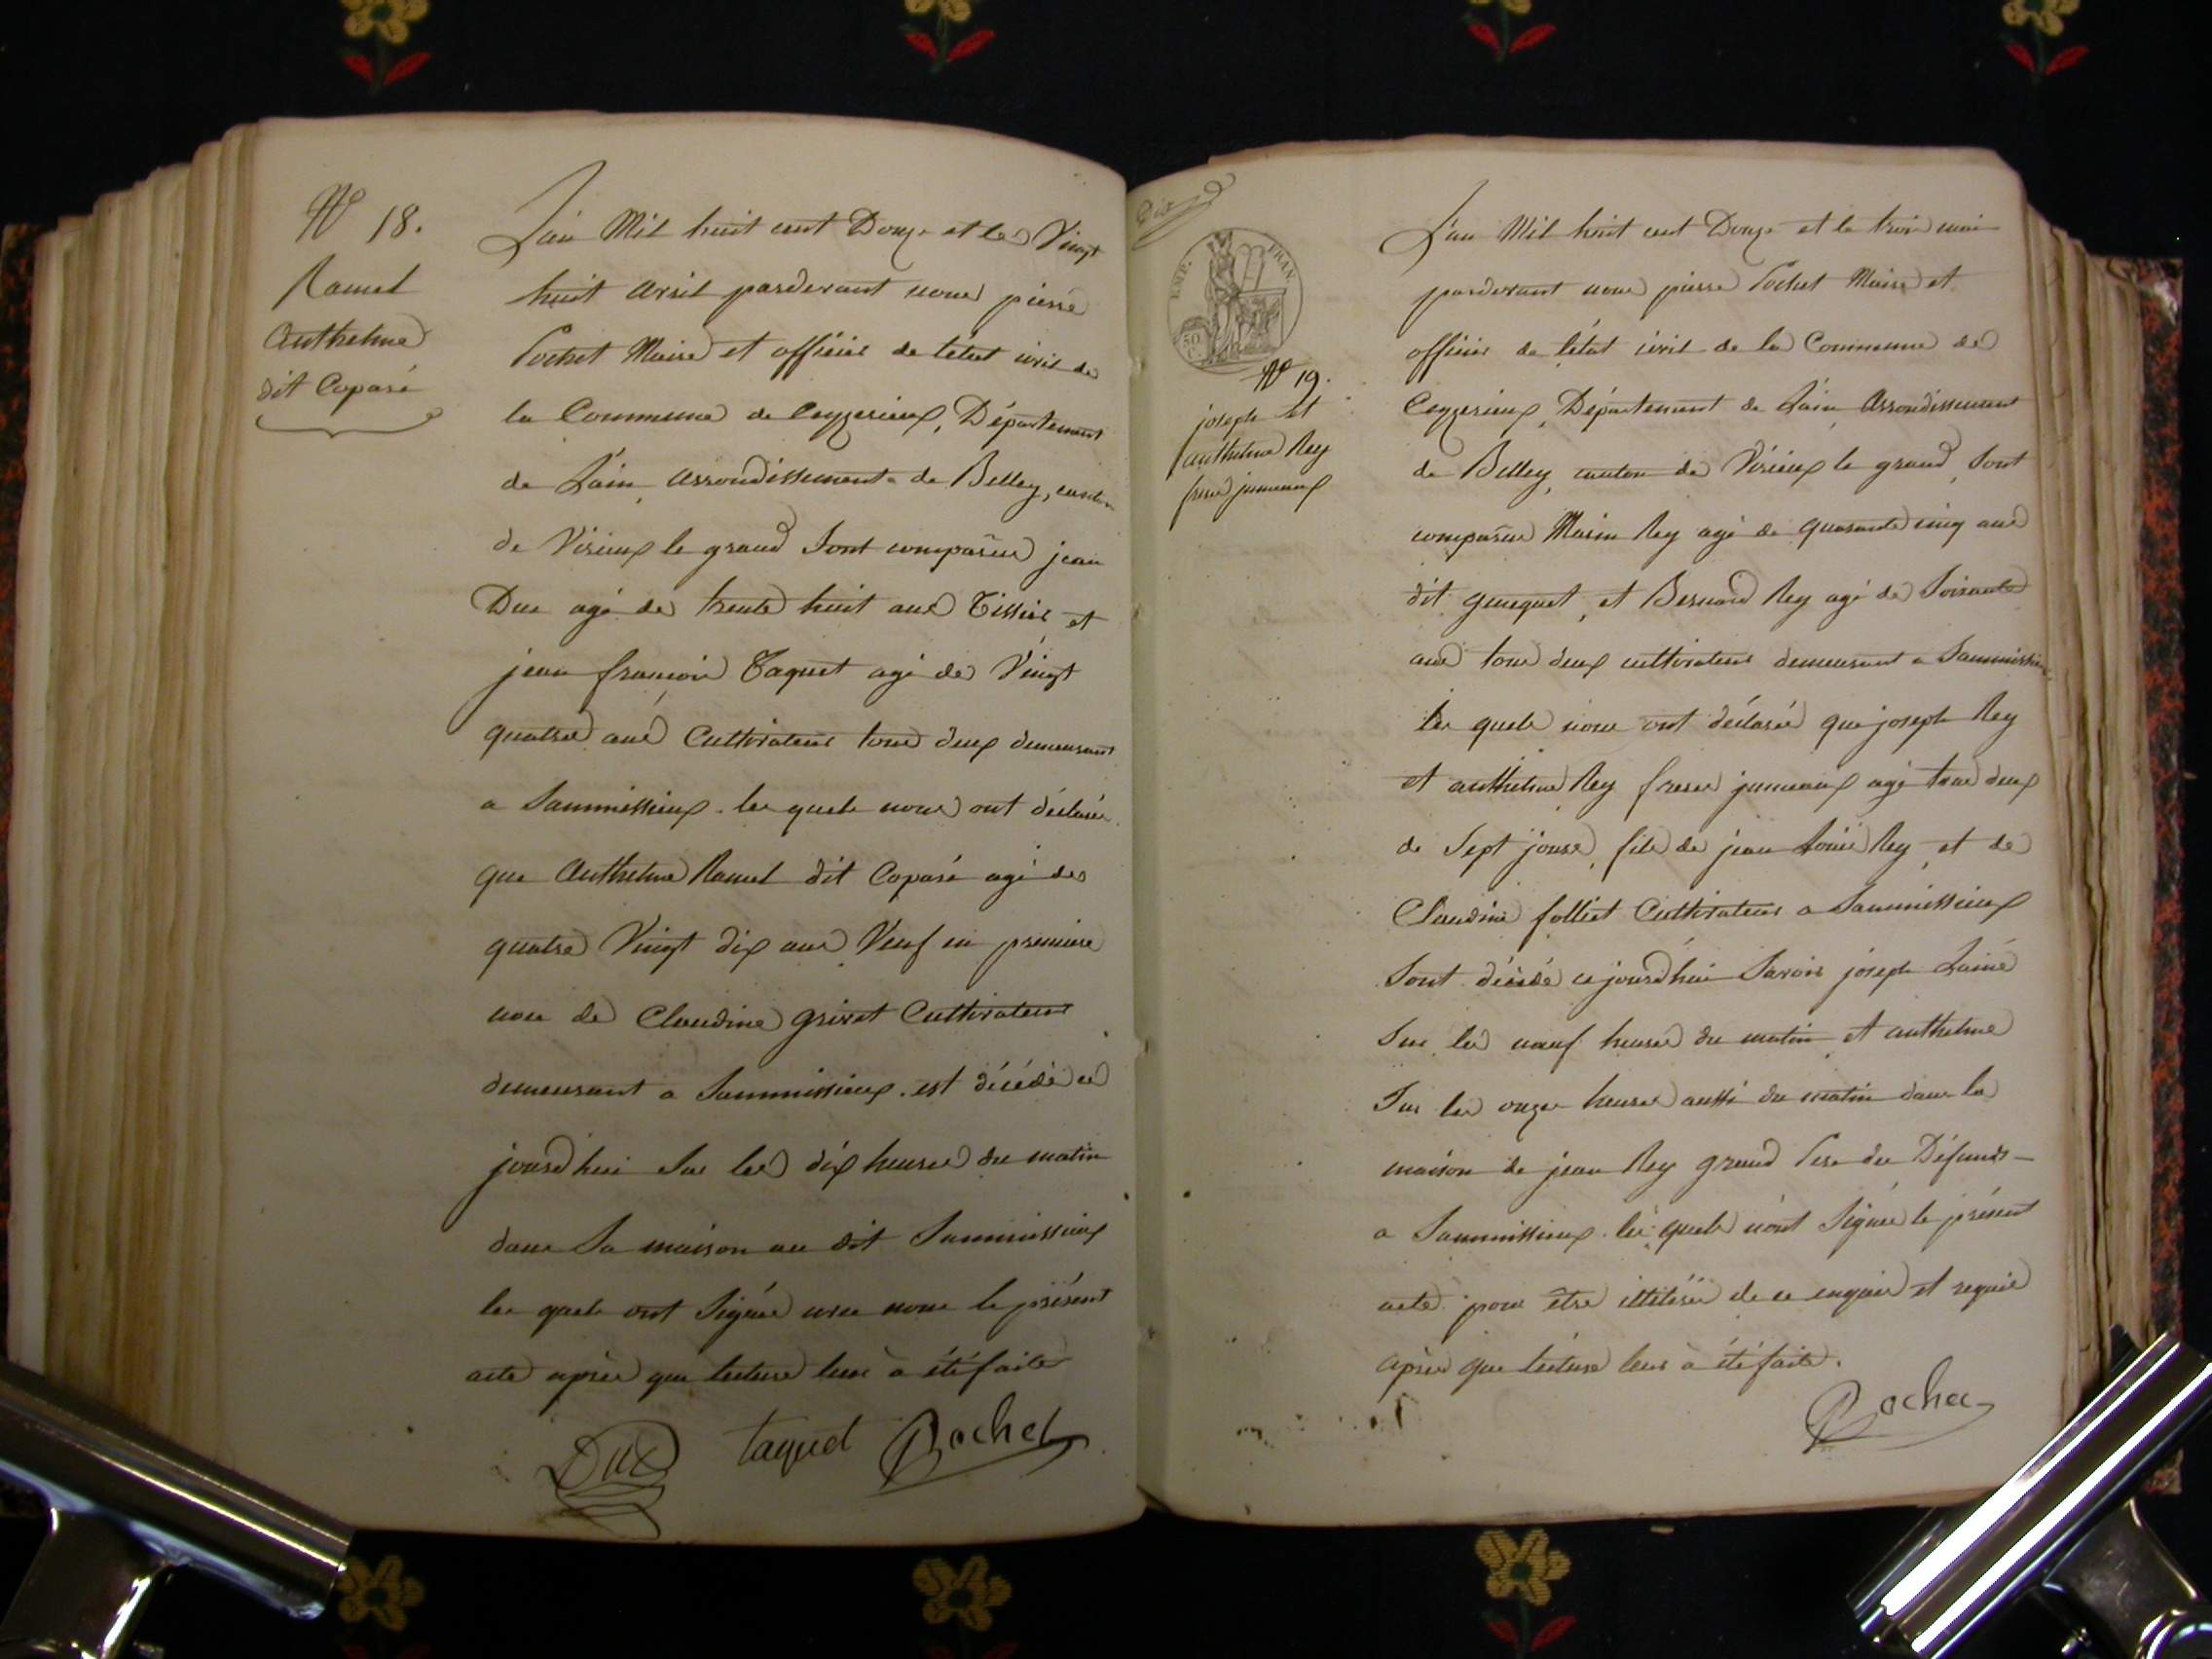 N° 18.
Ramel
Anthelme
dit Coparé
L'an Mil huit cent Douze et le Vingt
huit avril pardevant nous pierre
Pochet Maire et officier de l'état civil de
la Commune de Ceyzerieux, Département
de L'ain, arrondissement de Belley, canton
de Virieux le grand Sont comparus jean
Duc agé de trente huit ans Tissier et
jean françois Taquet agé de Vingt
quatre ans Cultivateurs tous deux demeurant
a Sammissieux. les quels nous ont déclaré
que Anthelme Ramel dit Coparé agé de
quatre Vingt dix ans Veuf en premiere
noce de Claudine grivet Cultivateur
demeurant a Sammissieux. est décédé ce
jourd'hui Sur les dix heures du matin
dans Sa maison au dit Sammissieux
les quels ont Signés avec nous le présent
acte après que lecture leur à été faite
Duc taquet Pochet
Dix
EMP. FRAN.
50 C.
N° 19.
joseph et
anthelme Rey
freres jumeaux
L'an Mil huit cent Douze et le trois mai
pardevant nous pierre Pochet Maire et
officier de l'état civil de la Commune de
Ceyzerieux, Département de L'ain, Arrondissement
de Belley, canton de Virieux le grand, Sont
comparus Marin Rey agé de quarante cinq ans
dit et Bernard Rey agé de Soixante
ans tous deux cultivateurs demeurant a Sammissieux
les quels nous ont déclarés que joseph Rey
et anthelme Rey freres jumeaux agé tous deux
de Sept jours, fils de jean Louis Rey, et de
Claudine folliet Cultivateurs a Sammissieux
Sont décédés cejourd'hui Savoir joseph L'ainé
Sur les neuf heures du matin et anthelme
Sur les onze heures aussi du matin dans la
maison de jean Rey grand Pere du Défunds
a Sammissieux. les quels n'ont Signés le présent
acte pour être illitérés de ce enquis et requis
après que lecture leur à été faite.
Pochet